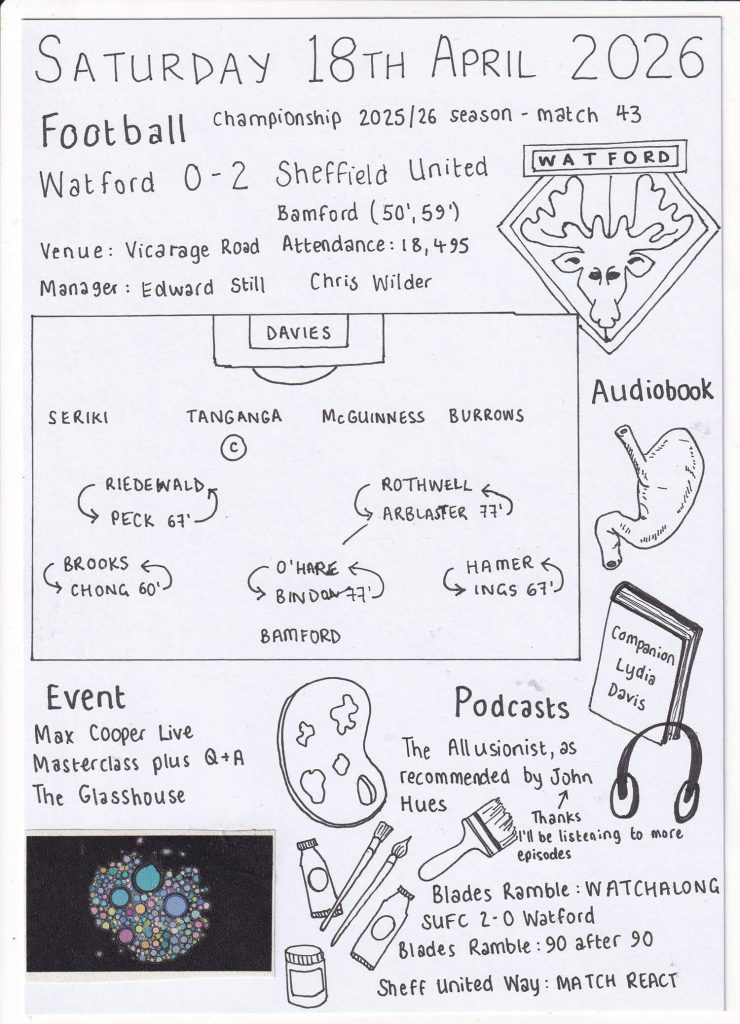 SATURDAY 18TH APRIL 2026
Football Championship 2025/26 season - match 43
Watford 0-2 Sheffield United
Bamford (50', 59')
Venue: Vicarage Road Attendance: 18,495
Manager: Edward Still Chris Wilder
WATFORD
DAVIES
SERIKI TANGANGA McGUINNESS BURROWS
C
RIEDEWALD ROTHWELL
PECK 67' ARBLASTER 77'
BROOKS O'HARE HAMER
CHONG 60' BINDON 77' INGS 67'
BAMFORD
Audiobook
Companion
Lydia
Davis
Event
Max Cooper Live
Masterclass plus Q+A
The Glasshouse
Podcasts
The Allusionist, as
recommended by John
Hues
Thanks
I'll be listening to more
episodes
Blades Ramble: WATCHALONG
SUFC 2-0 Watford
Blades Ramble: 90 after 90
Sheff United Way: MATCH REACT